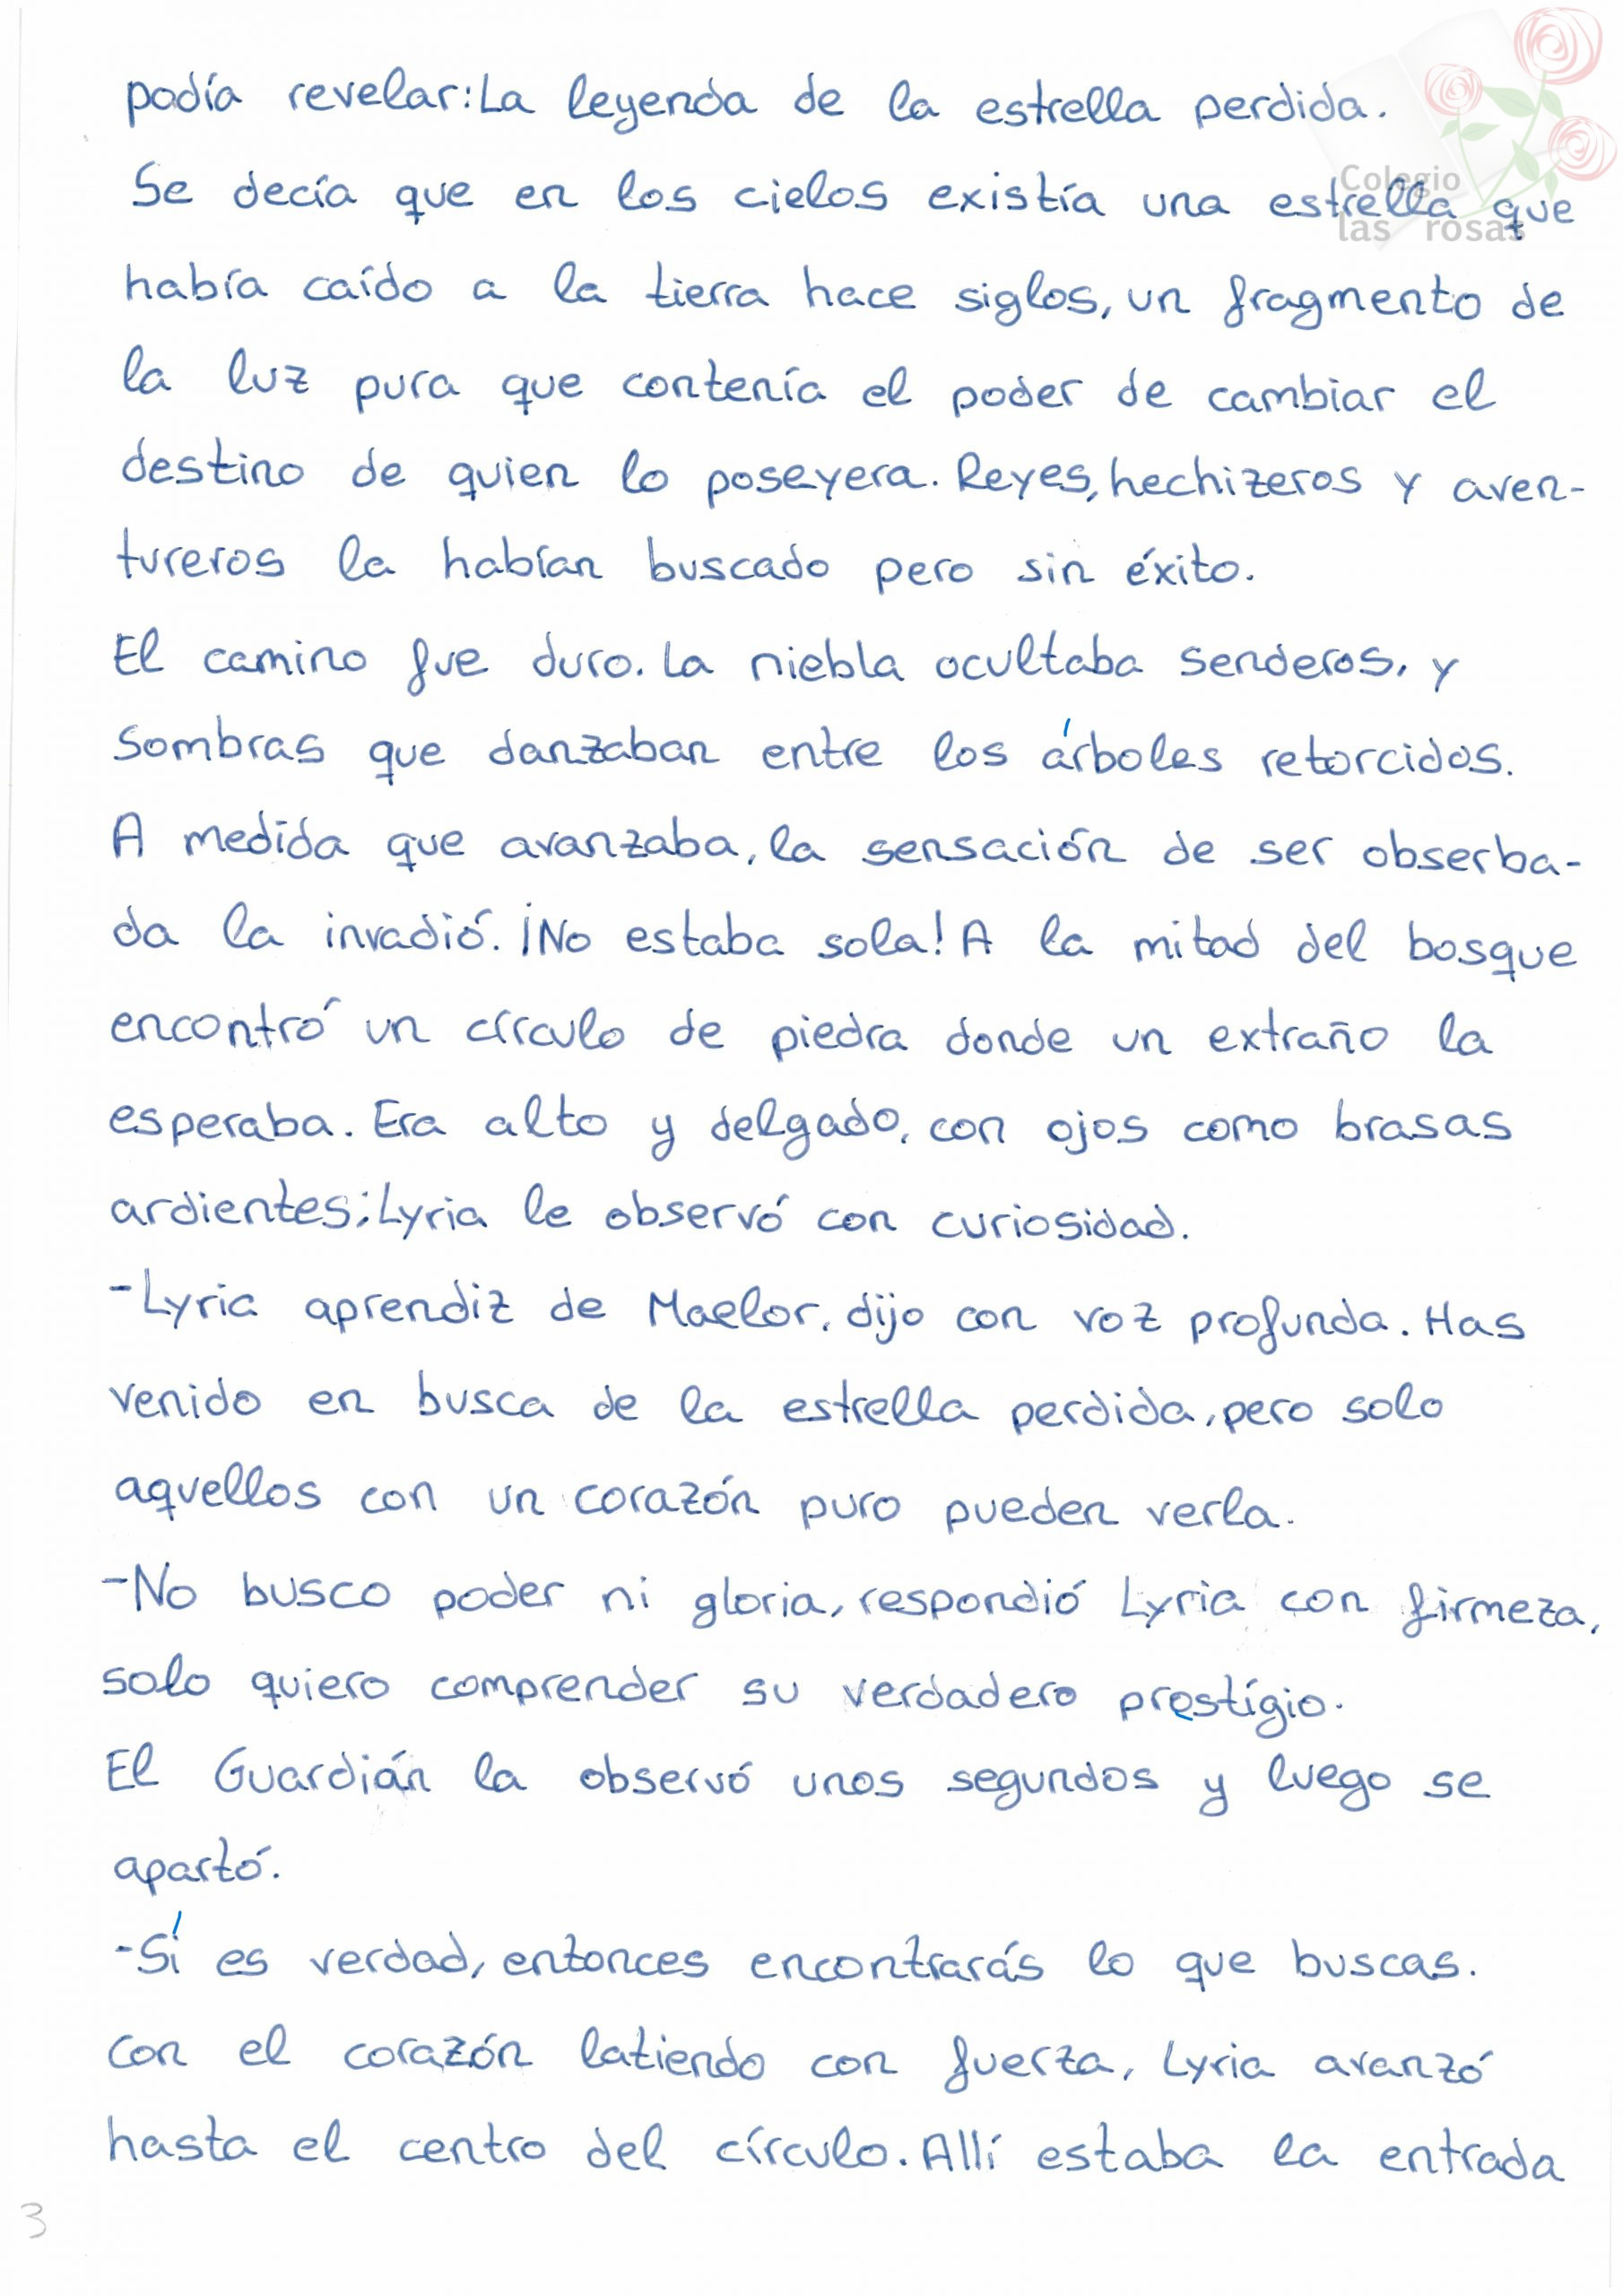 Colegio
las rosas
podía revelar: La leyenda de la estrella perdida.
Se decía que en los cielos existía una estrella que
había caído a la tierra hace siglos, un fragmento de
la luz pura que contenía el poder de cambiar el
destino de quien lo poseyera. Reyes, hechizeros y aven-
tureros la habían buscado pero sin éxito.
El camino fue duro. La niebla ocultaba senderos, y
sombras que danzaban entre los árboles retorcidos.
A medida que avanzaba, la sensación de ser obserba-
da la invadió. ¡No estaba sola! A la mitad del bosque
encontró un círculo de piedra donde un extraño la
esperaba. Era alto y delgado, con ojos como brasas
ardientes; Lyria le observó con curiosidad.
-Lyria aprendiz de Maelor, dijo con voz profunda. Has
venido en busca de la estrella perdida, pero solo
aquellos con un corazón puro pueden verla.
-No busco poder ni gloria, respondió Lyria con firmeza,
solo quiero comprender su verdadero prestígio.
El Guardián la observó unos segundos y luego se
apartó.
-Sí es verdad, entonces encontrarás lo que buscas.
Con el corazón latiendo con fuerza, Lyria avanzó
hasta el centro del círculo. Allí estaba la entrada
3